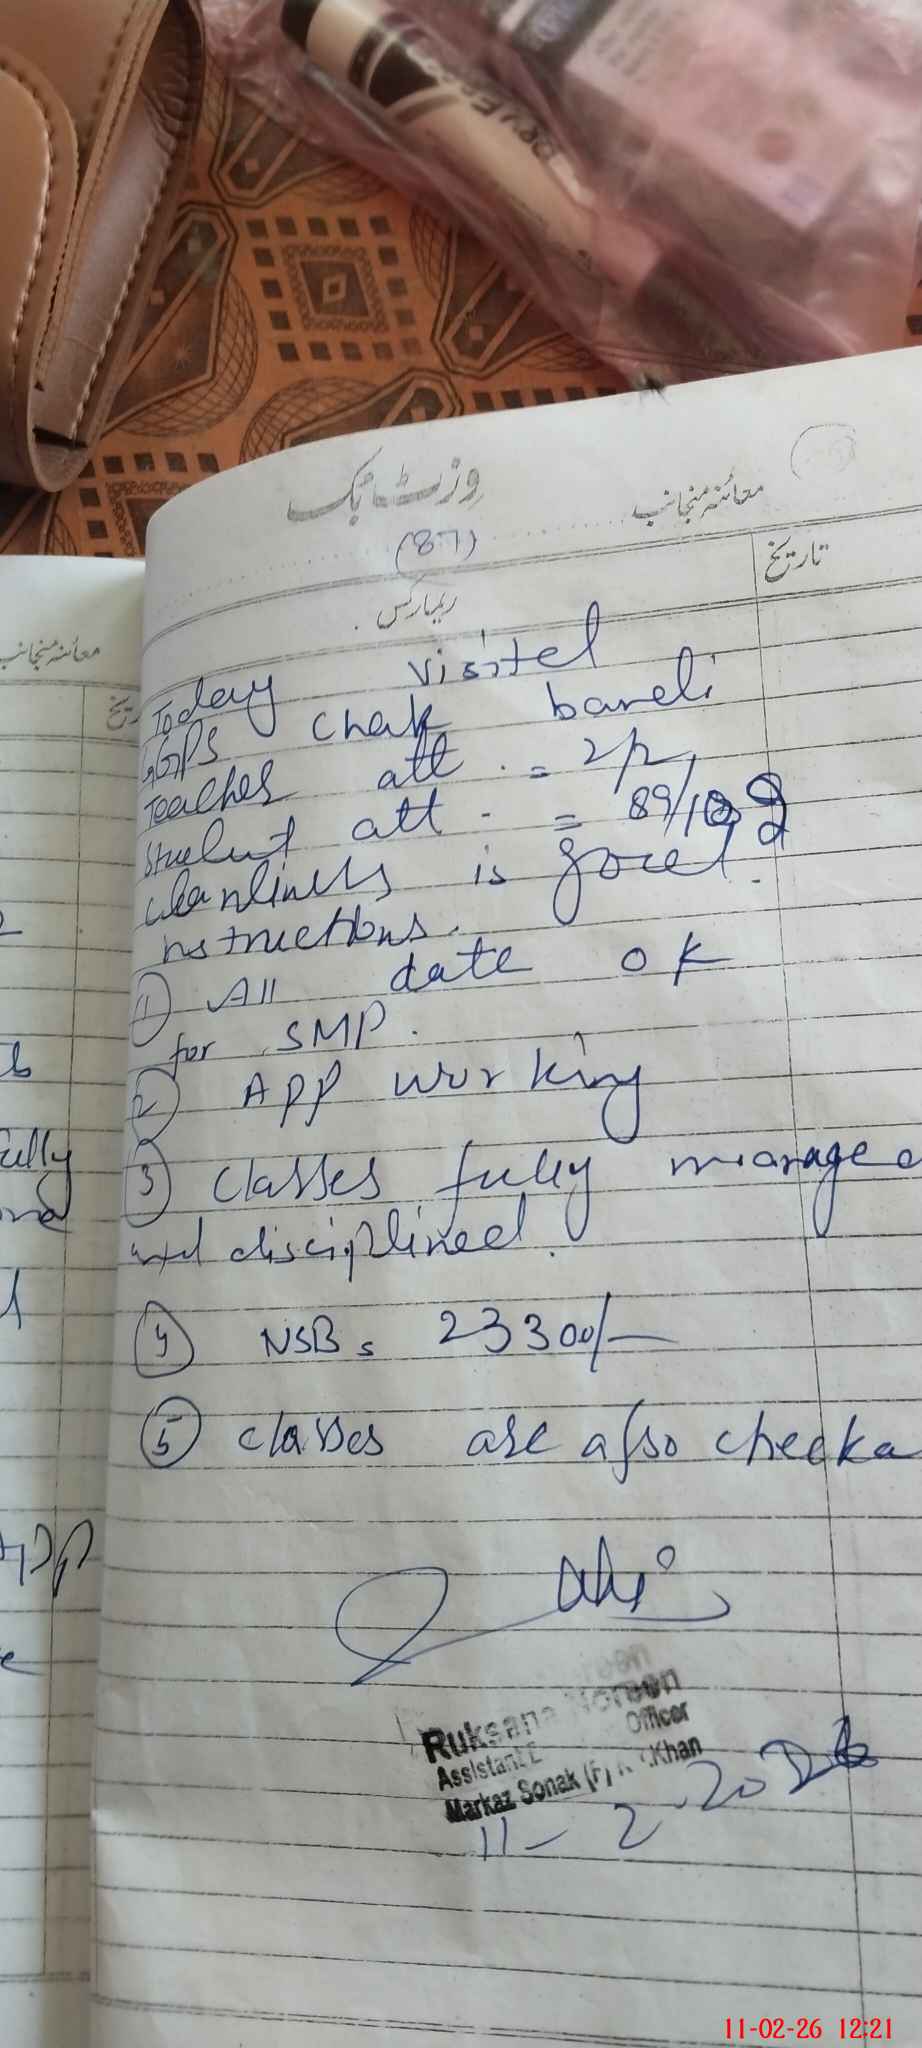 DRY ERASE
وزٹ بک
معائنہ منجانب
(87)
تاریخ
ریمارکس
معائنہ منجانب
Today visited
GGPS Chak bandi
Teacher att. = 2/2
Student att. = 89/10
cleanliness is good.
instructions.
① All date ok
for SMP.
② App working
③ Classes fully manage
and disciplined.
④ NSB = 23300/-
⑤ classes are also checke
Ruksana Noreen
Assistant Officer
Markaz Sonak (F) Khan
11-2-20
fully
11-02-26 12:21